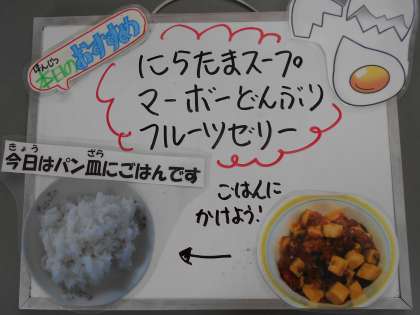 ほんじつ
本日のおすすめ
にらたまスープ
マーボーどんぶり
フルーツゼリー
きょう ざら
今日はパン皿にごはんです
ごはんに
かけよう!